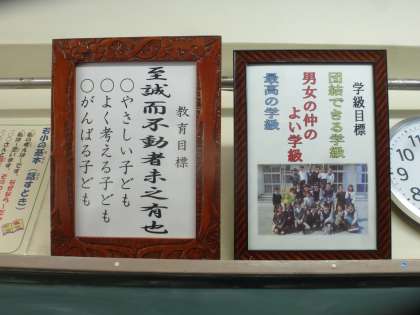 教育目標
至誠而不動者未之有也
○やさしい子ども
○よく考える子ども
○がんばる子ども
学級目標
団結できる学級
男女の仲の
よい学級
最高の学級